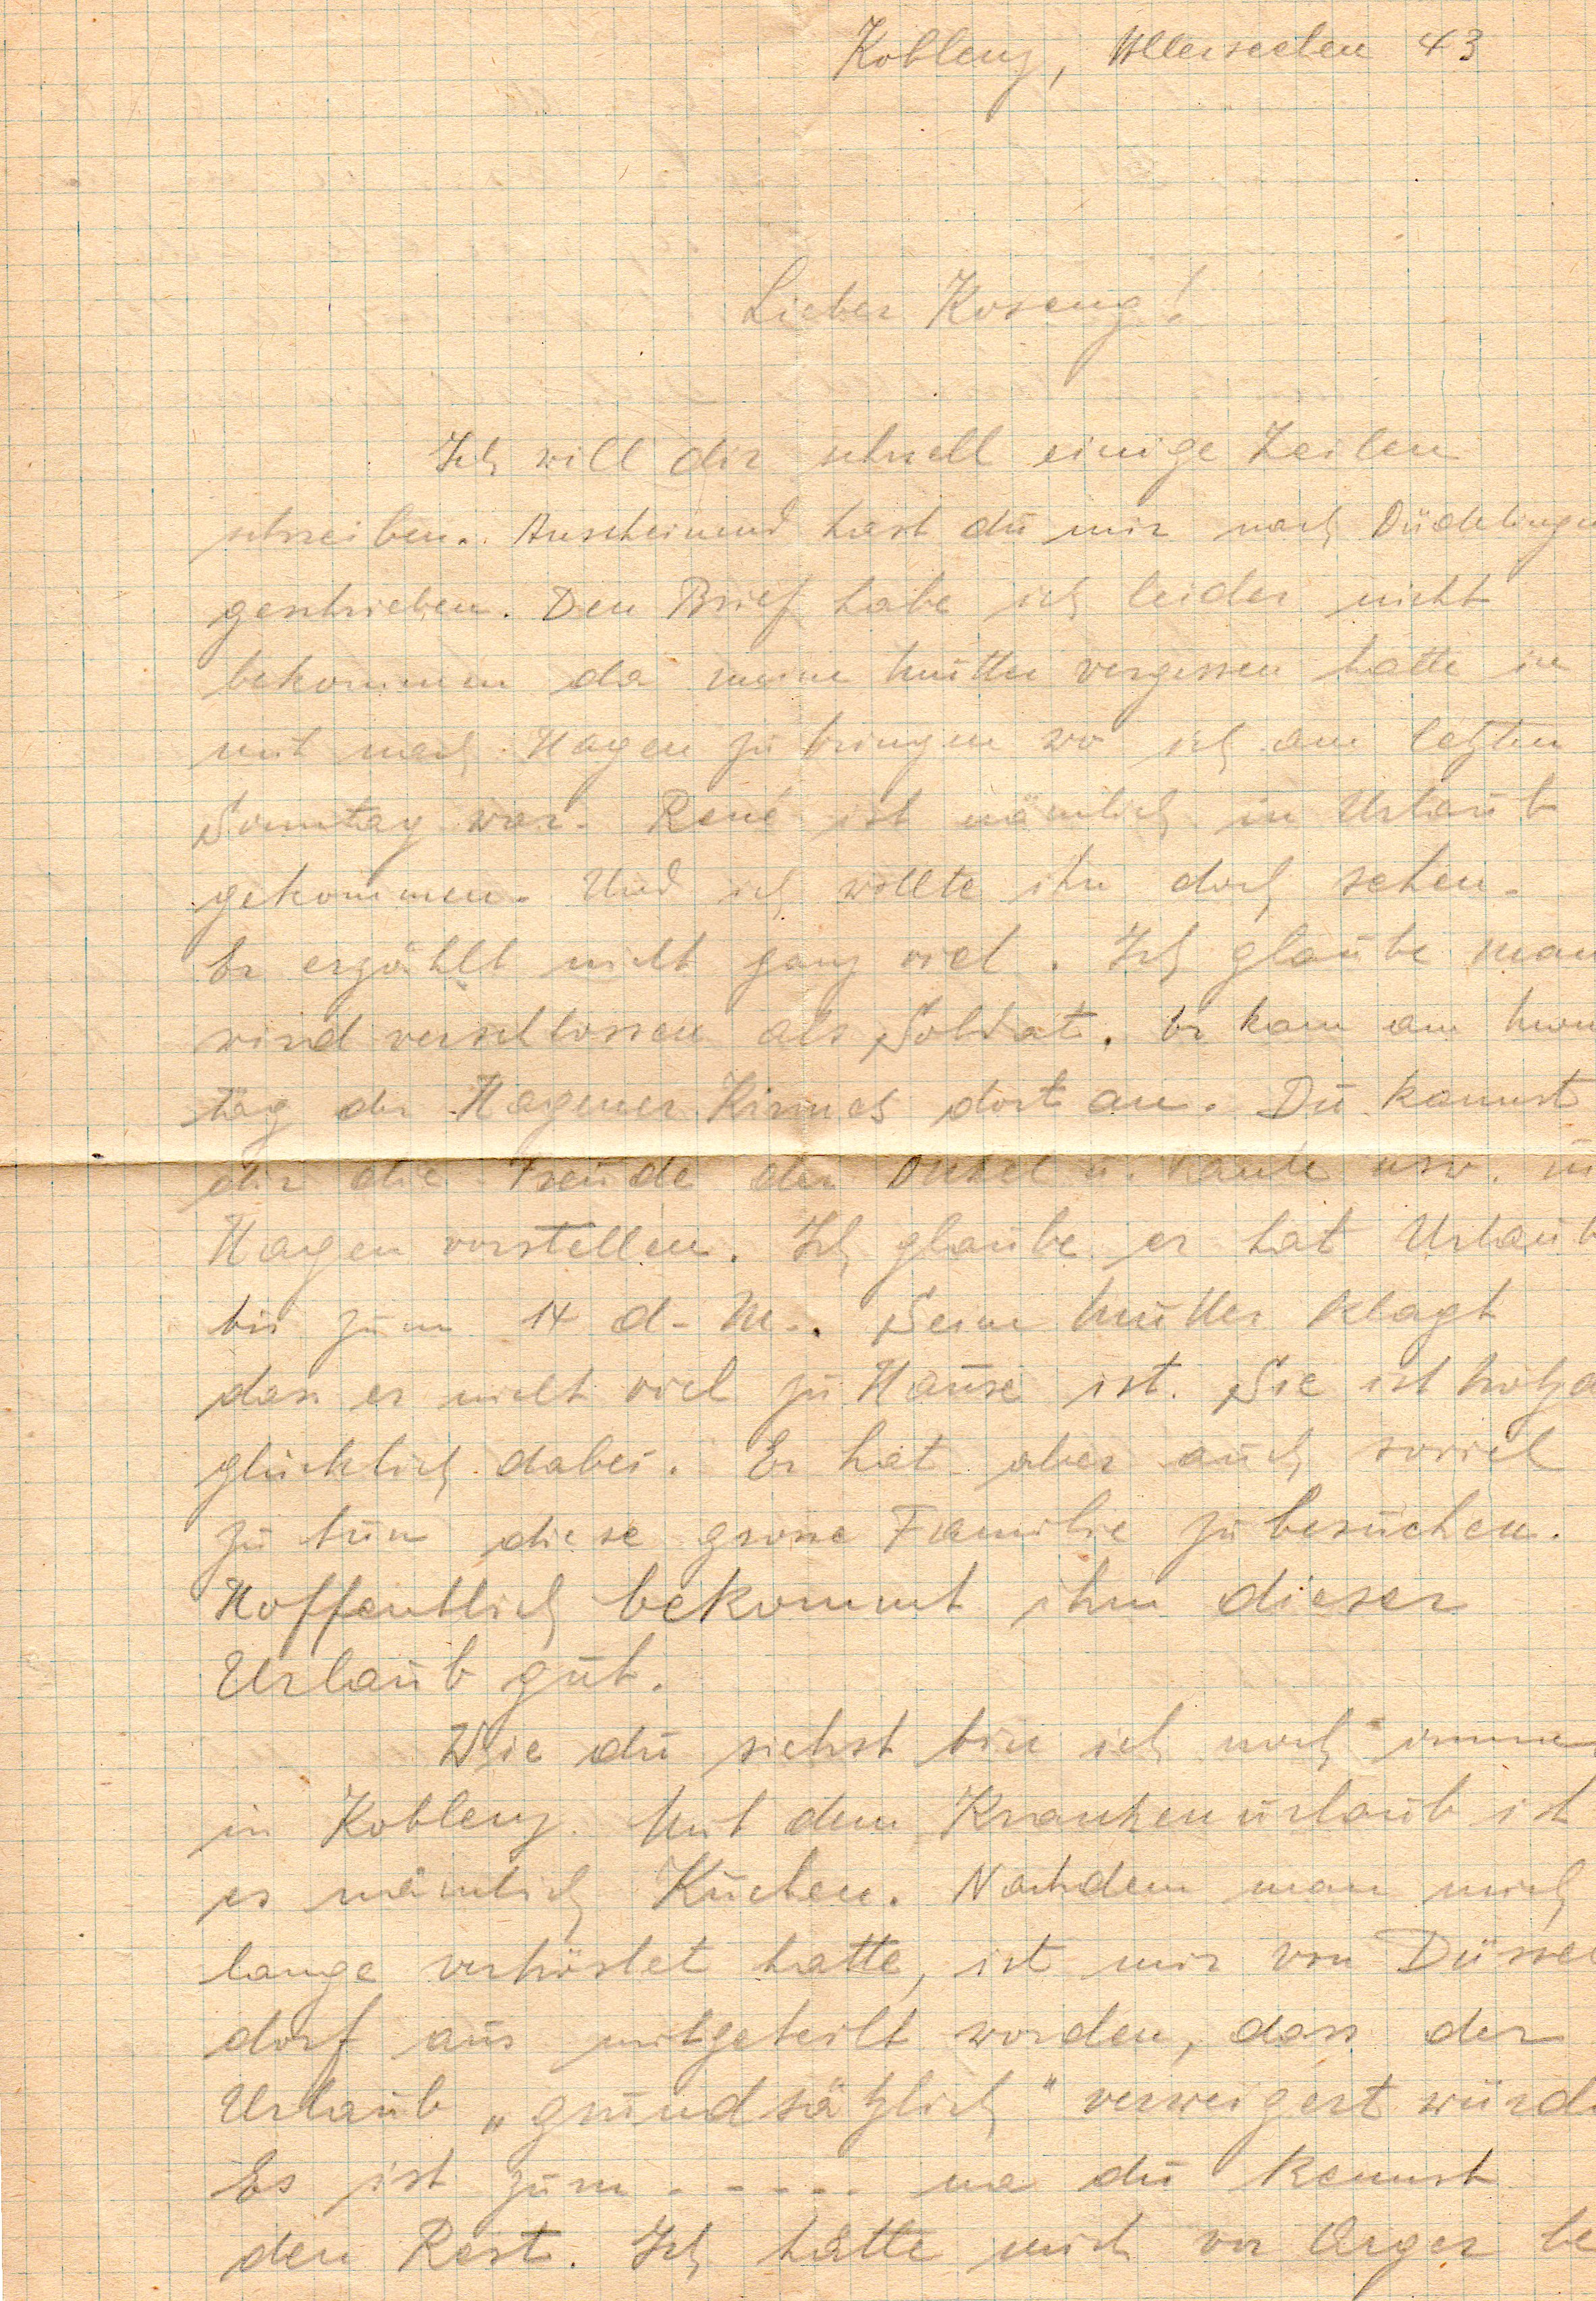 Koblenz, Allerseelen 43
Lieber Koseng!
Ich will dir schnell einige Zeilen
schreiben. Anscheinend hast du mir nach Düdelingen
geschrieben. Den Brief habe ich leider nicht
bekommen da meine Mutter vergessen hatte in
mit nach Hagen zu bringen wo ich am letzten
Sonntag war. René ist nämlich in Urlaub
gekommen. Und ich wollte ihn doch sehen.
Er erzählt nicht ganz viel. Ich glaube man
wird verschlossen als Soldat. Er kam am Mon
tag der Hagener Kirmes dort an. Du kannst
dir die Freude der Onkel u. Tante usw. in
Hagen vorstellen. Ich glaube er hat Urlaub
bis zum 14 d. M.. Seine Mutter klagt
dass er nicht viel zu Hause ist. Sie ist trotzd
glücklich dabei. Er hat aber auch soviel
zu tun diese grosse Familie zu besuchen.
Hoffentlich bekommt ihm dieser
Urlaub gut.
Wie du siehst bin ich noch immer
in Koblenz. Mit dem Krankenurlaub ist
es nämlich Kuchen. Nachdem man mich
lange vertröstet hatte, ist mir von Düssel
dorf aus mitgeteilt worden, dass der
Urlaub „grundsätzlich" verweigert würde
Es ist zum - - - - - na du kennst
den Rest. Ich hätte mich vor Ärger be